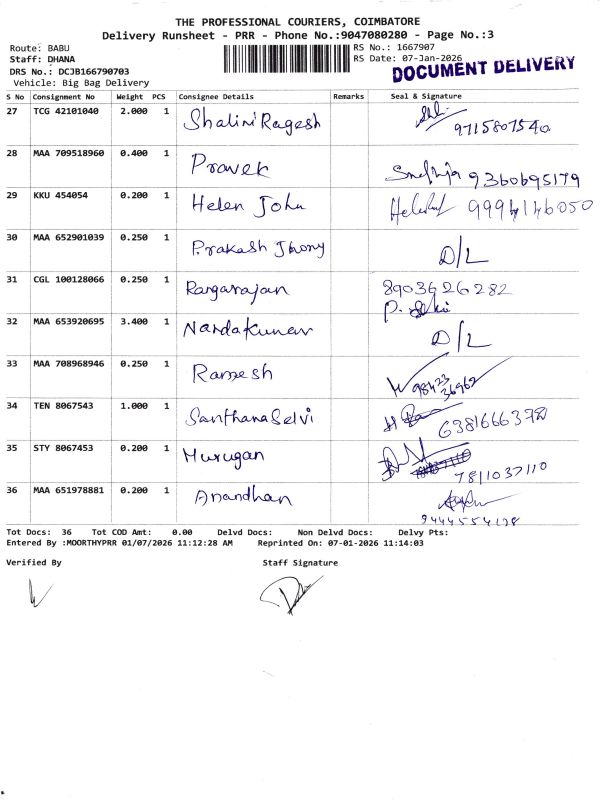 THE PROFESSIONAL COURIERS, COIMBATORE
Delivery Runsheet - PRR - Phone No.:9047080280 - Page No.:3
Route: BABU RS No.: 1667907
Staff: DHANA RS Date: 07-Jan-2026
DOCUMENT DELIVERY
DRS No.: DCJB166790703
Vehicle: Big Bag Delivery
S No Consignment No Weight PCS Consignee Details Remarks Seal & Signature
27 TCG 42101040 2.000 1 Shalini Ragesh
9715807540
28 MAA 709518960 0.400 1 Praveen 9360695179
29 KKU 454054 0.200 1 Helen John 9994146050
30 MAA 652901039 0.250 1 Prakash Jhony D/L
31 CGL 100128066 0.250 1 Rangarajan 8903626282
P.
32 MAA 653920695 3.400 1 Nandakumar D/L
33 MAA 708968946 0.250 1 Ramesh 98423
36962
34 TEN 8067543 1.000 1 Santhana Selvi 6381666378
35 STY 8067453 0.200 1 Murugan
7811037110
36 MAA 651978881 0.200 1 Anandhan
9444554128
Tot Docs: 36 Tot COD Amt: 0.00 Delvd Docs: Non Delvd Docs: Delvy Pts:
Entered By :MOORTHYPRR 01/07/2026 11:12:28 AM Reprinted On: 07-01-2026 11:14:03
Verified By Staff Signature